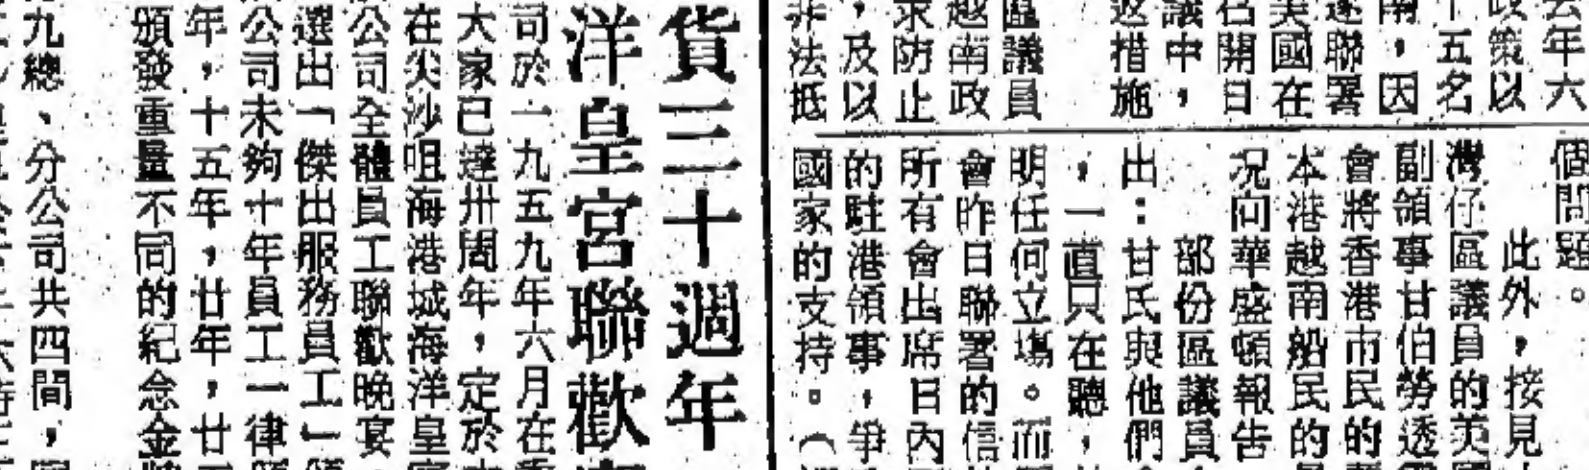 去年六
政策以
十五名
南，因
遂聯署
美國在
名開日
議中，
返措施
區議員
越南政
求防止
，及以
非法抵
個問題。
此外，接見
灣仔區議員的美
副領事甘伯勞透
會將香港市民的
本港越南船民的
况向華盛頓報告
部份區議員
出：甘氏與他們
，一直只在聽，
明任何立場。而
會昨日聯署的信
所有會出席日內
的駐港領事，爭
國家的支持。（
貨三十週年
洋皇宮聯歡
司於一九五九年六月在
大家已達卅周年，定於
在尖沙咀海港城海洋皇
公司全體員工聯歡晚宴，
選出「傑出服務員工」頒
公司未夠十年員工一律
年，十五年，廿年，廿
頒發重量不同的紀念金
九總、分公司共四間，